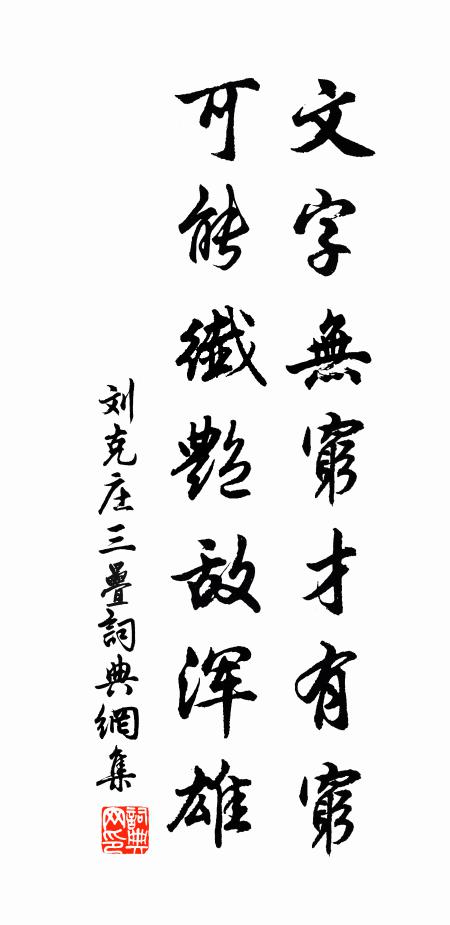 文字無窮才有窮
可能纖艷敌浑雄
刘克庄三疊詞典網集
詞典网印